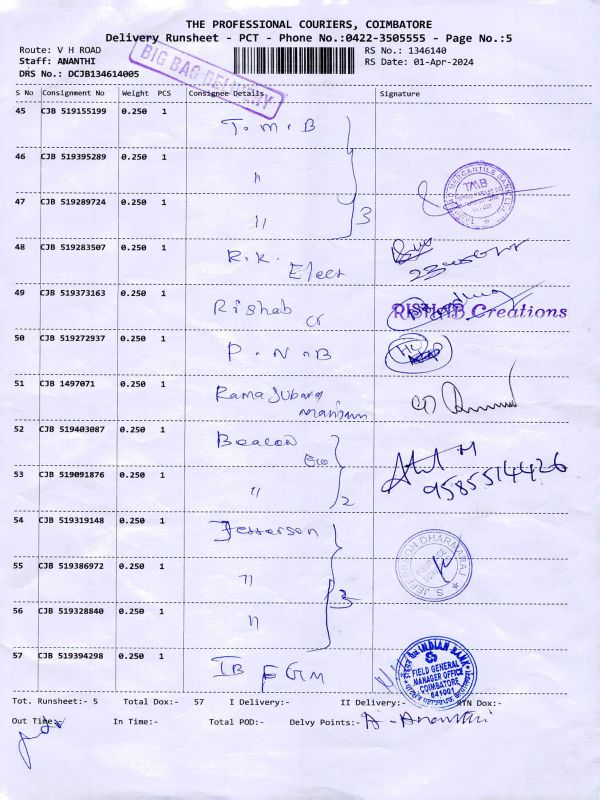 THE PROFESSIONAL COURIERS, COIMBATORE
Delivery Runsheet - PCT - Phone No.:0422-3505555 - Page No.:5
Route: V H ROAD
RS No.: 1346140
Staff: ANANTHI
RS Date: 01-Apr-2024
DRS No.: DCJB134614005
BIG BAG DELIVERY
S No Consignment No Weight PCS Consignee Details Signature
45 CJB 519155199 0.250 1 T.M.B
46 CJB 519395289 0.250 1 "
TMB
47 CJB 519289724 0.250 1 " 3
48 CJB 519283507 0.250 1 R.K.
Elect
49 CJB 519373163 0.250 1 Rishab
Cr
RISHAB Creations
50 CJB 519272937 0.250 1 P.N.B
51 CJB 1497071 0.250 1 Rama
52 CJB 519403087 0.250 1 Beacon
53 CJB 519091876 0.250 1 " 2
9585514426
54 CJB 519319148 0.250 1 Jefferson
55 CJB 519386972 0.250 1 "
S. JEFFERSON DHARMARAJ
56 CJB 519328840 0.250 1 " 3
57 CJB 519394298 0.250 1 IB FGM
INDIAN BANK
FIELD GENERAL
MANAGER OFFICE
COIMBATORE
641001
Tot. Runsheet:- 5 Total Dox:- 57 I Delivery:- II Delivery:- RTN Dox:-
Out Time:- In Time:- Total POD:- Delvy Points:- A - Ananthi